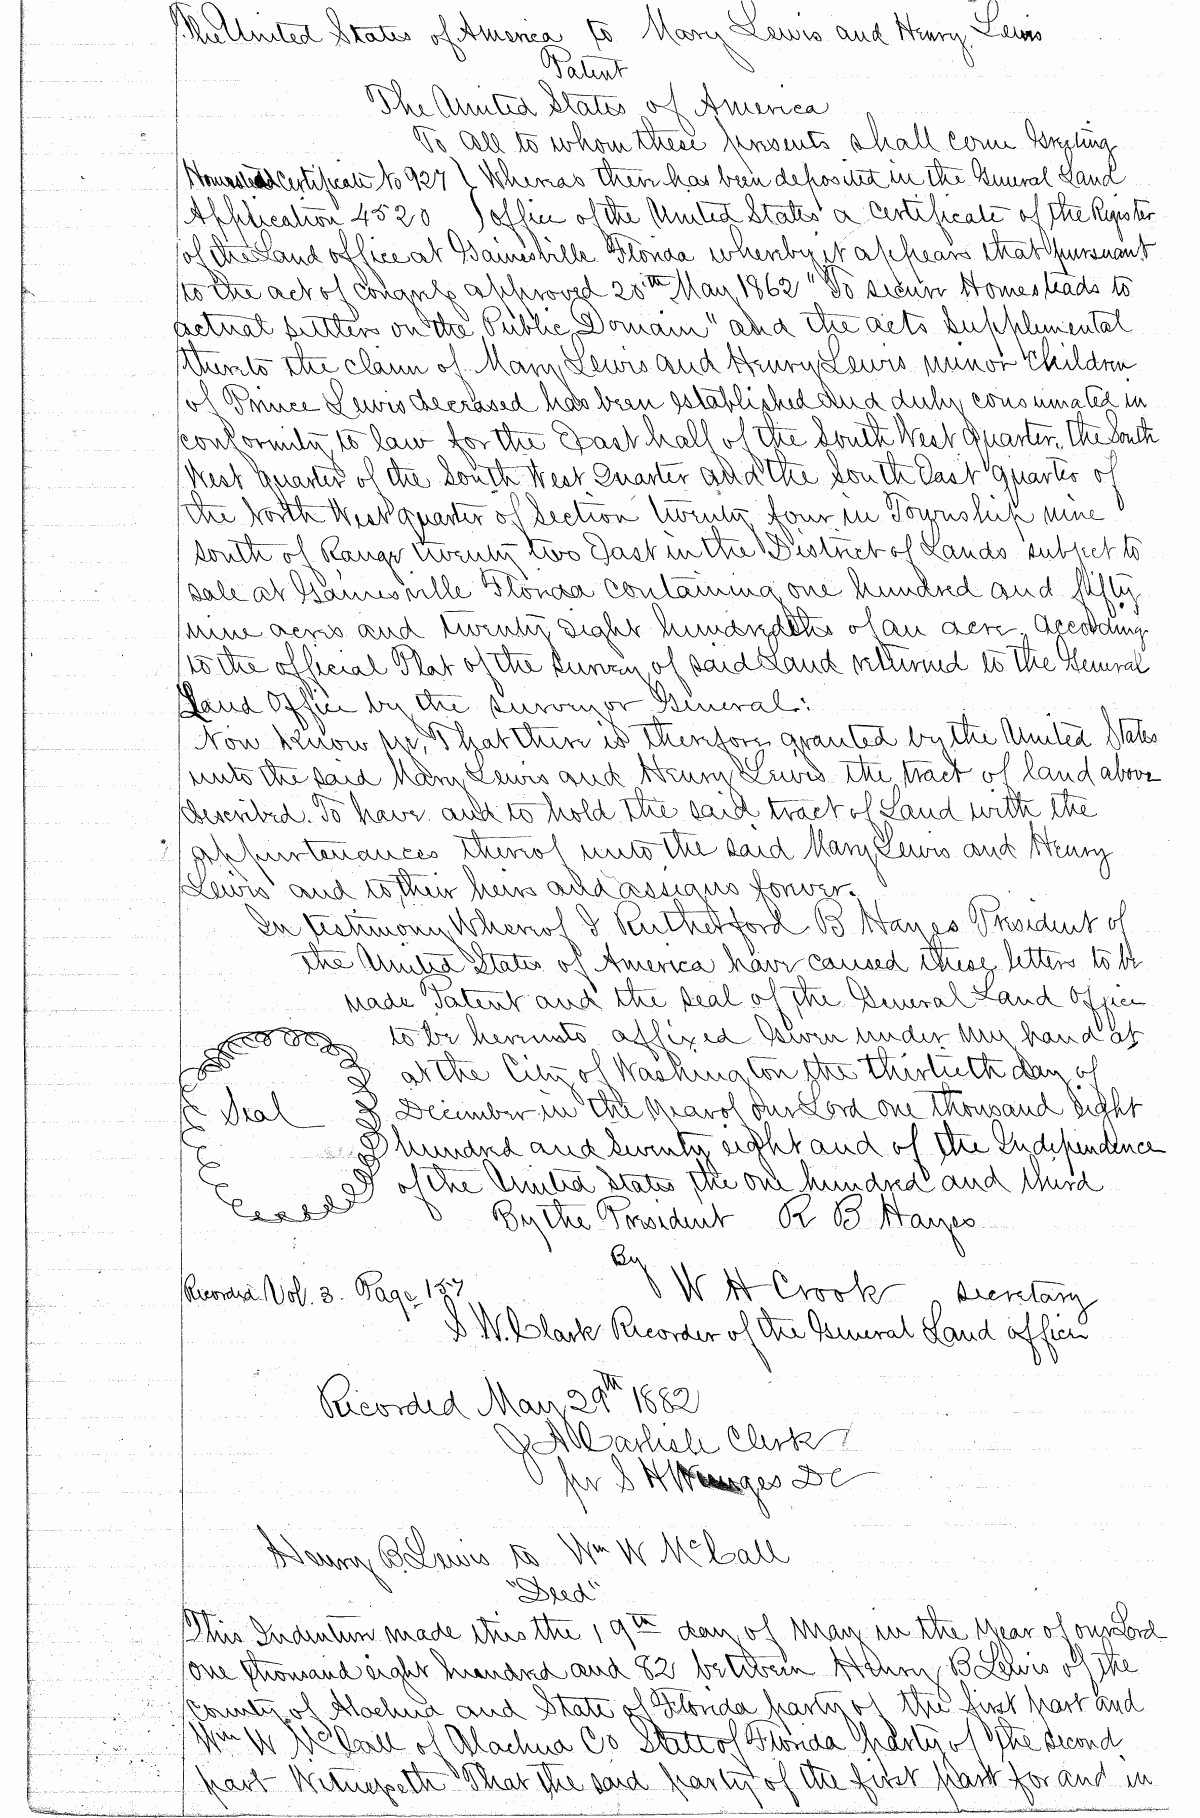 The United States of America to Mary Lewis and Henry Lewis
Patent
The United States of America
To all to whom these presents shall come Greeting
Homestead Certificate No 927 } Whereas there has been deposited in the General Land
Application 4520 } office of the United States a certificate of the Register
of the Land office at Gainesville Florida whereby it appears that pursuant
to the act of Congress approved 20th May 1862 "To secure Homesteads to
actual settlers on the Public Domain" and the acts supplemental
thereto the claim of Mary Lewis and Henry Lewis minor children
of Prince Lewis deceased has been established and duly consumated in
conformity to law for the East half of the South West quarter, the South
West quarter of the South West Quarter and the South East quarter of
the North West quarter of Section twenty four in Township nine
south of Range twenty two East in the District of Lands subject to
sale at Gainesville Florida containing one hundred and fifty
nine acres and twenty eight hundredths of an acre. According
to the official Plat of the survey of said Land returned to the General
Land Office by the surveyor General:
Now know ye, That there is therefore granted by the United States
unto the said Mary Lewis and Henry Lewis the tract of land above
described. To have and to hold the said tract of Land with the
appurtenances thereof unto the said Mary Lewis and Henry
Lewis and to their heirs and assigns forever.
In testimony Whereof I Rutherford B Hayes President of
the United States of America have caused these letters to be
made Patent and the seal of the General Land Office
to be hereunto affixed Given under my hand at
at the City of Washington the thirtieth day of
Seal December in the year of our Lord one thousand eight
hundred and seventy eight and of the Independence
of the United States the one hundred and third
By the President R B Hayes
By
Recorded Vol. 3. Page 157 W H Crook Secretary
S W. Clark Recorder of the General Land office
Recorded May 29th 1882
J A Carlisle Clerk
pr S H Wienges DC
Henry B. Lewis to Wm W McCall
"Deed"
This Indenture made this the 19th day of May in the year of our Lord
one thousand eight hundred and 82 between Henry B Lewis of the
County of Alachua and State of Florida party of the first part and
Wm W McCall of Alachua Co State of Florida party of the second
part Witnesseth That the said party of the first part for and in